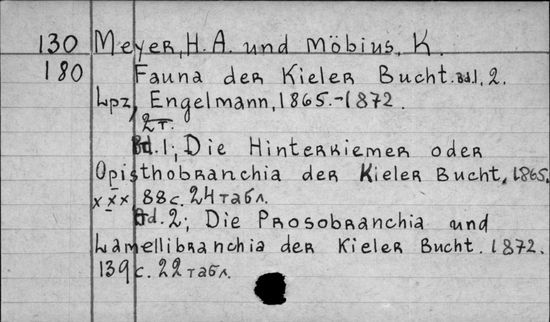 130 Meyer, H. A. und Möbius, K.
180 Fauna der Kieler Bucht. Bd. 1, 2.
Lpz, Engelmann, 1865.-1872.
2т.
Bd. 1; Die Hinterkiemer oder
Opisthobranchia der Kieler Bucht. 1865.
XXX 88 с. 24 табл.
Bd. 2; Die Prosobranchia und
Lamellibranchia der Kieler Bucht. 1872.
139 с. 22 табл.